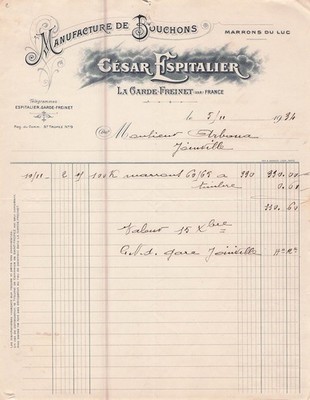 MANUFACTURE DE BOUCHONS
MARRONS DU LUC
CÉSAR ESPITALIER
LA GARDE-FREINET (VAR) FRANCE
Télégrammes:
ESPITALIER, GARDE-FREINET
le 5/11 1934
Monsieur Arbona
Joinville
10/11 2 100 K marrons 60/65 a 330 330.00
timbre 0.60
330.60
Valeur 15 Xbre
gare Joinville